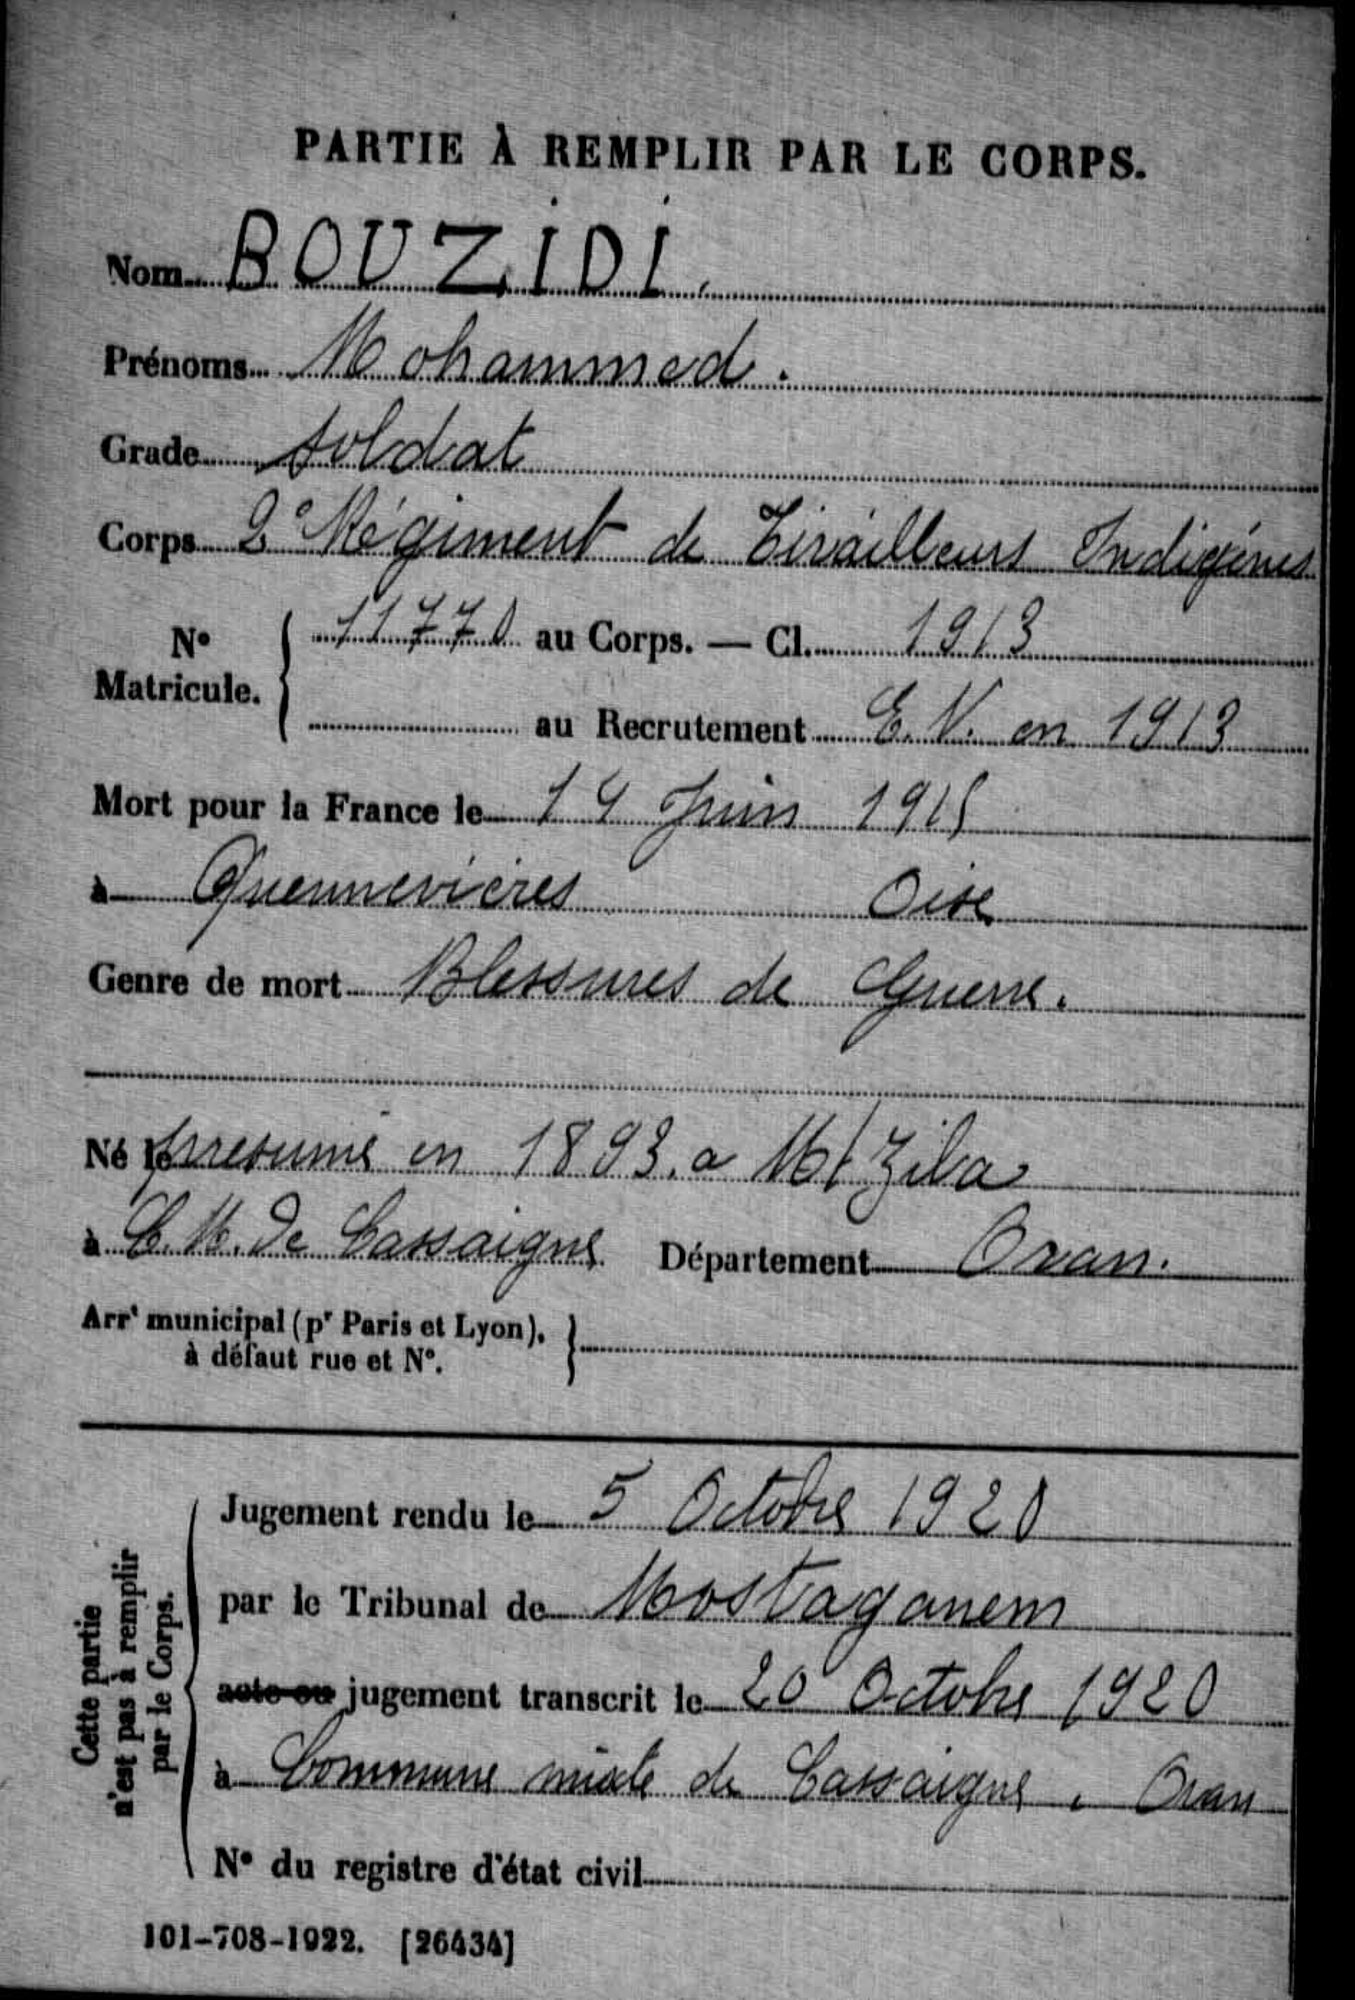 PARTIE À REMPLIR PAR LE CORPS.
Nom BOUZIDI.
Prénoms Mohammed.
Grade Soldat
Corps 2e Régiment de Tirailleurs Indigènes
No Matricule. { 11770 au Corps. — Cl. 1913
au Recrutement E.V. en 1913
Mort pour la France le 14 Juin 1915
à Quennevières Oise
Genre de mort Blessures de Guerre.
Né le présumé en 1893. a M/Zila
à C.M. de Cassaigne Département Oran.
Arrt municipal (pr Paris et Lyon), à défaut rue et No. }
Cette partie n'est pas à remplir par le Corps.
Jugement rendu le 5 Octobre 1920
par le Tribunal de Mostaganem
acte ou jugement transcrit le 20 Octobre 1920
à Commune mixte de Cassaigne, Oran
No du registre d'état civil
101-708-1922. [26434]